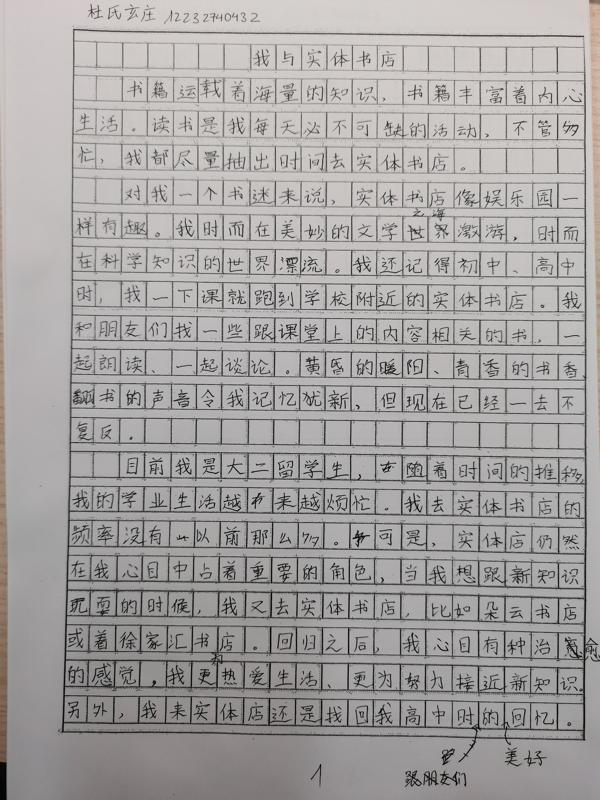 杜氏玄庄 12232740432
我与实体书店
书籍运载着海量的知识，书籍丰富着内心
生活。读书是我每天必不可缺的活动，不管多
忙，我都尽量抽出时间去实体书店。
对我一个书迷来说，实体书店像娱乐园一
样有趣。我时而在美妙的文学之海激游，时而
在科学知识的世界漂流。我还记得初中、高中
时，我一下课就跑到学校附近的实体书店。我
和朋友们找一些跟课堂上的内容相关的书，一
起朗读、一起谈论。黄昏的暖阳、青香的书香、
翻书的声音令我记忆犹新，但现在已经一去不
复反。
目前我是大二留学生，随着时间的推移，
我的学业生活越来越烦忙。我去实体书店的
频率没有以前那么多。可是，实体店仍然
在我心目中占着重要的角色，当我想跟新知识
玩耍的时候，我又去实体书店，比如朵云书店
或着徐家汇书店。回归之后，我心目有种治愈
的感觉，我更为热爱生活、更为努力接近新知识。
另外，我来实体店还是找回我高中时的回忆。
跟朋友们 美好
1